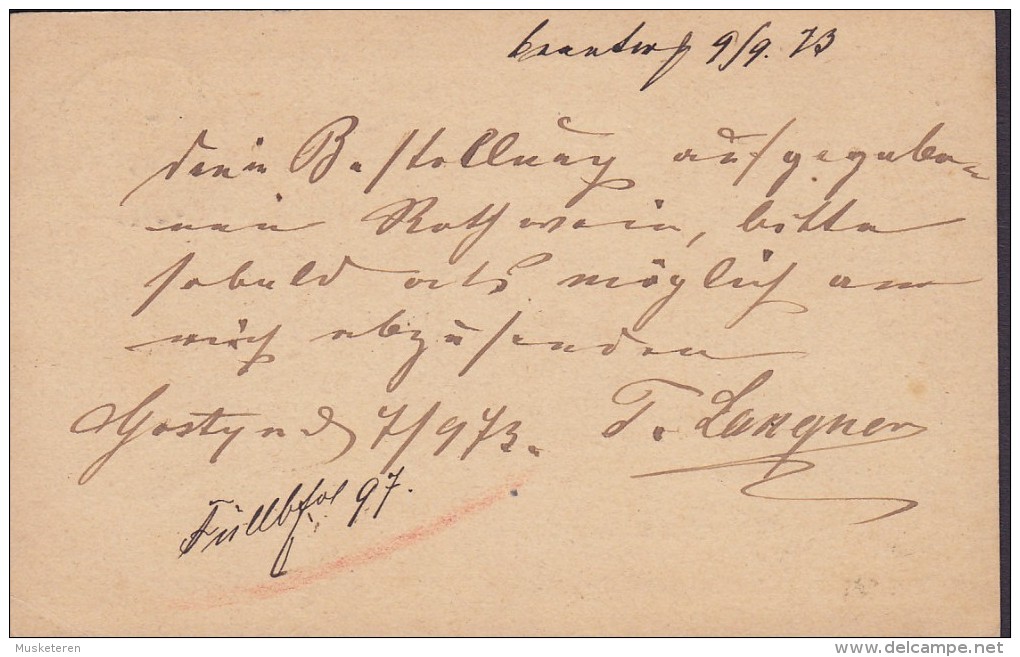 beantw 9/9. 73
Bestellung aufgegebe=
nen Rothwein, bitte
sobald als möglich an
mich abzusenden
Gostyn d 7/9 73. T. Langner
97.
Musketeren
delcampe.net